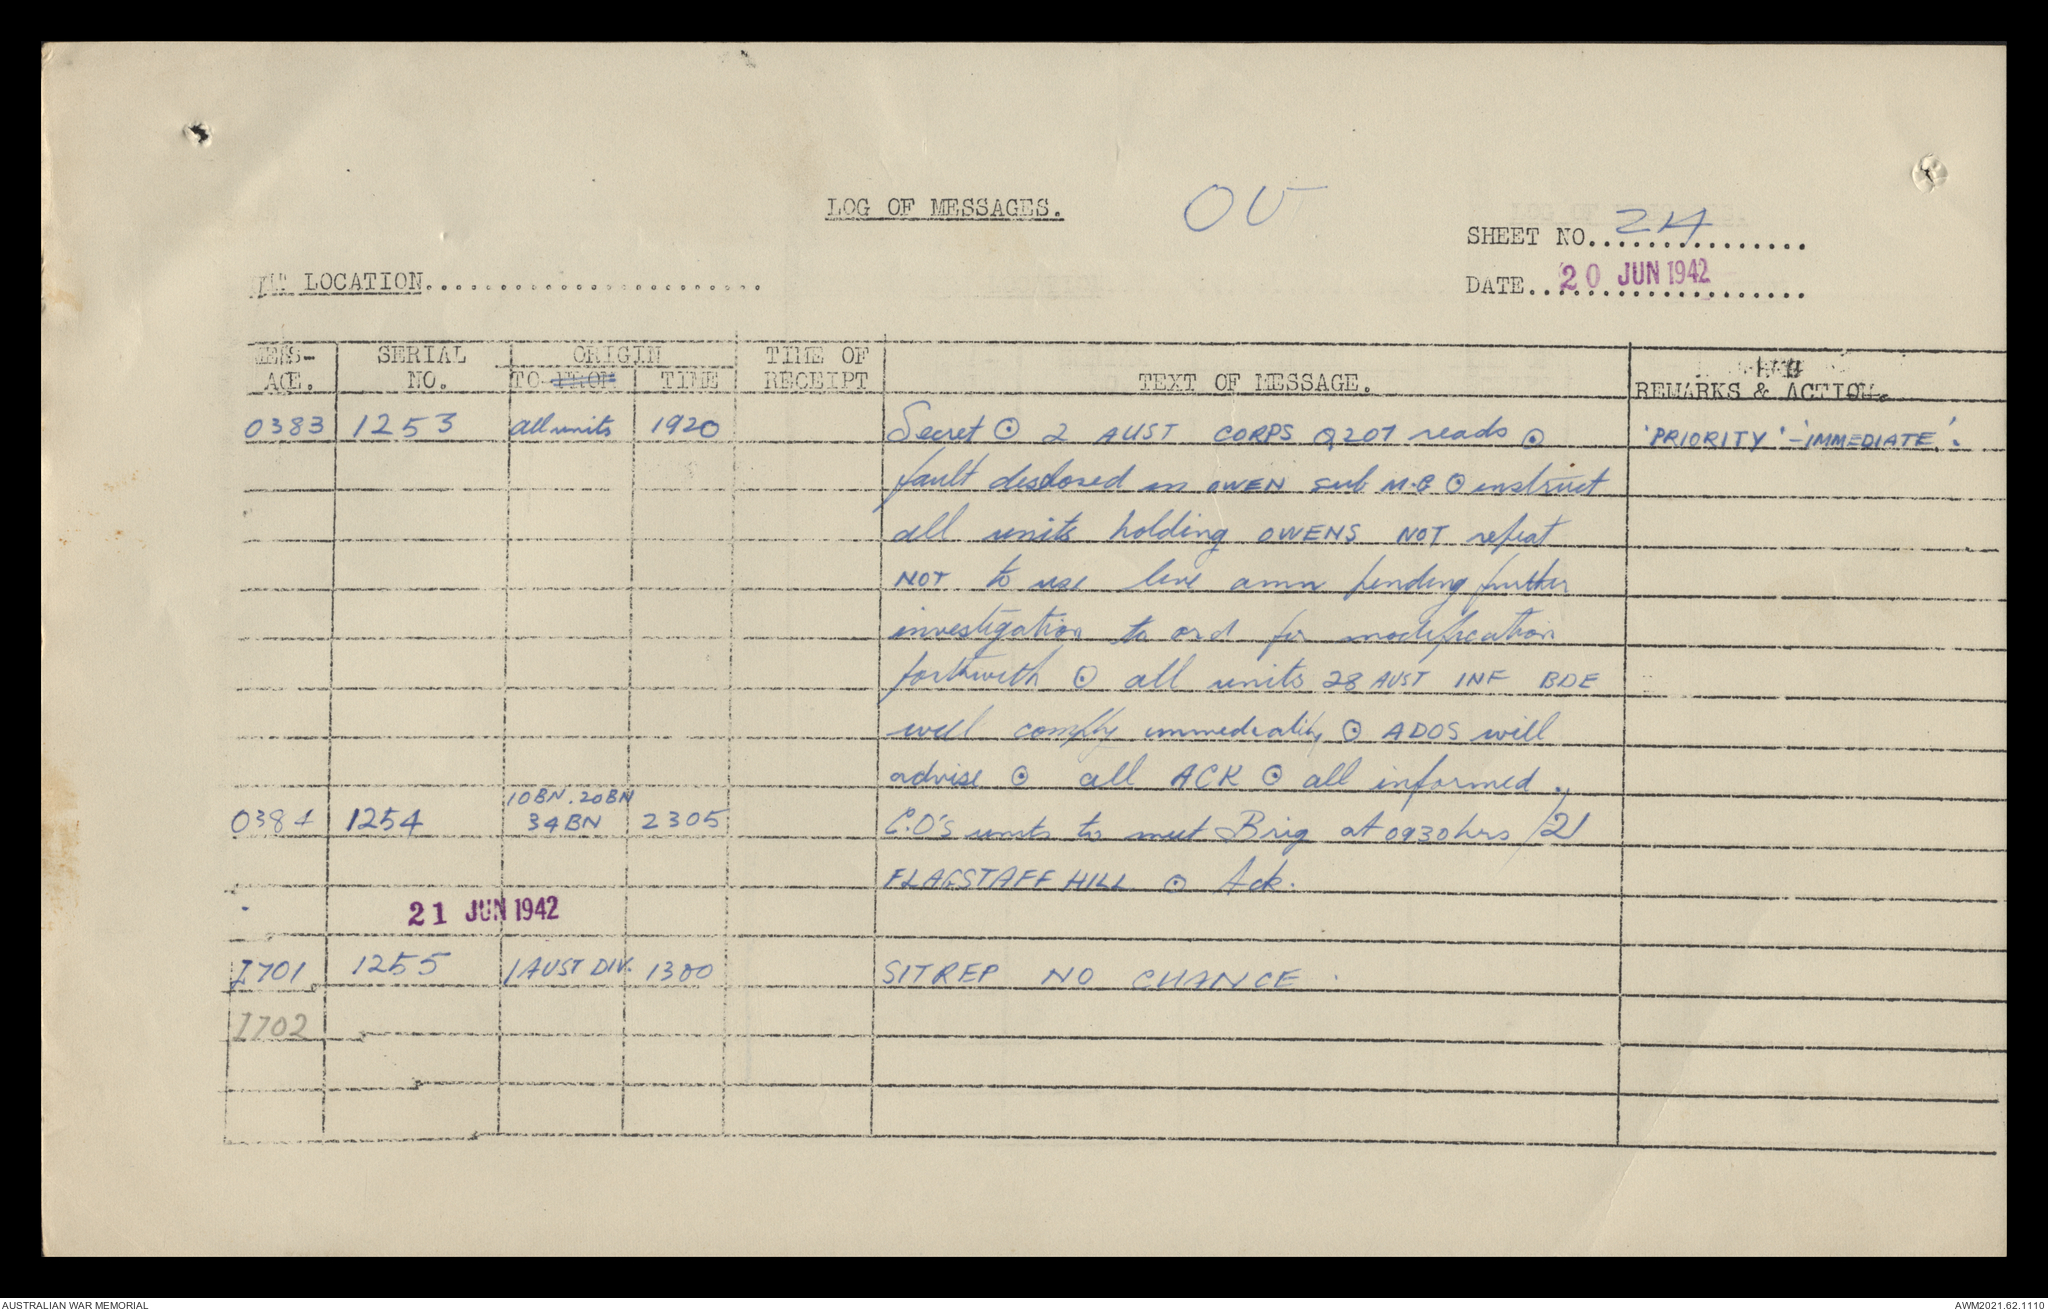 LOG OF MESSAGES. OU
SHEET NO. 24
LOCATION
DATE 20 JUN 1942
MESS-
AGE. SERIAL
NO. ORIGIN
TO FROM TIME TIME OF
RECEIPT TEXT OF MESSAGE. REMARKS & ACTION.
0383 1253 all units 1920 Secret ⊙ 2 AUST CORPS Q207 reads ⊙ 'PRIORITY' - 'IMMEDIATE'.
fault disclosed in OWEN sub M.G ⊙ instruct
all units holding OWENS NOT repeat
NOT to use live amn pending further
investigation to ord for modification
forthwith ⊙ all units 28 AUST INF BDE
will comply immediately ⊙ ADOS will
advise ⊙ all ACK ⊙ all informed.
0384 1254 10BN. 20BN
34BN 2305 C.O's units to meet Brig at 0930hrs /21
FLAGSTAFF HILL ⊙ Ack.
21 JUN 1942
I701 1255 1 AUST DIV. 1300 SITREP NO CHANGE.
I702
AUSTRALIAN WAR MEMORIAL AWM2021.62.1110